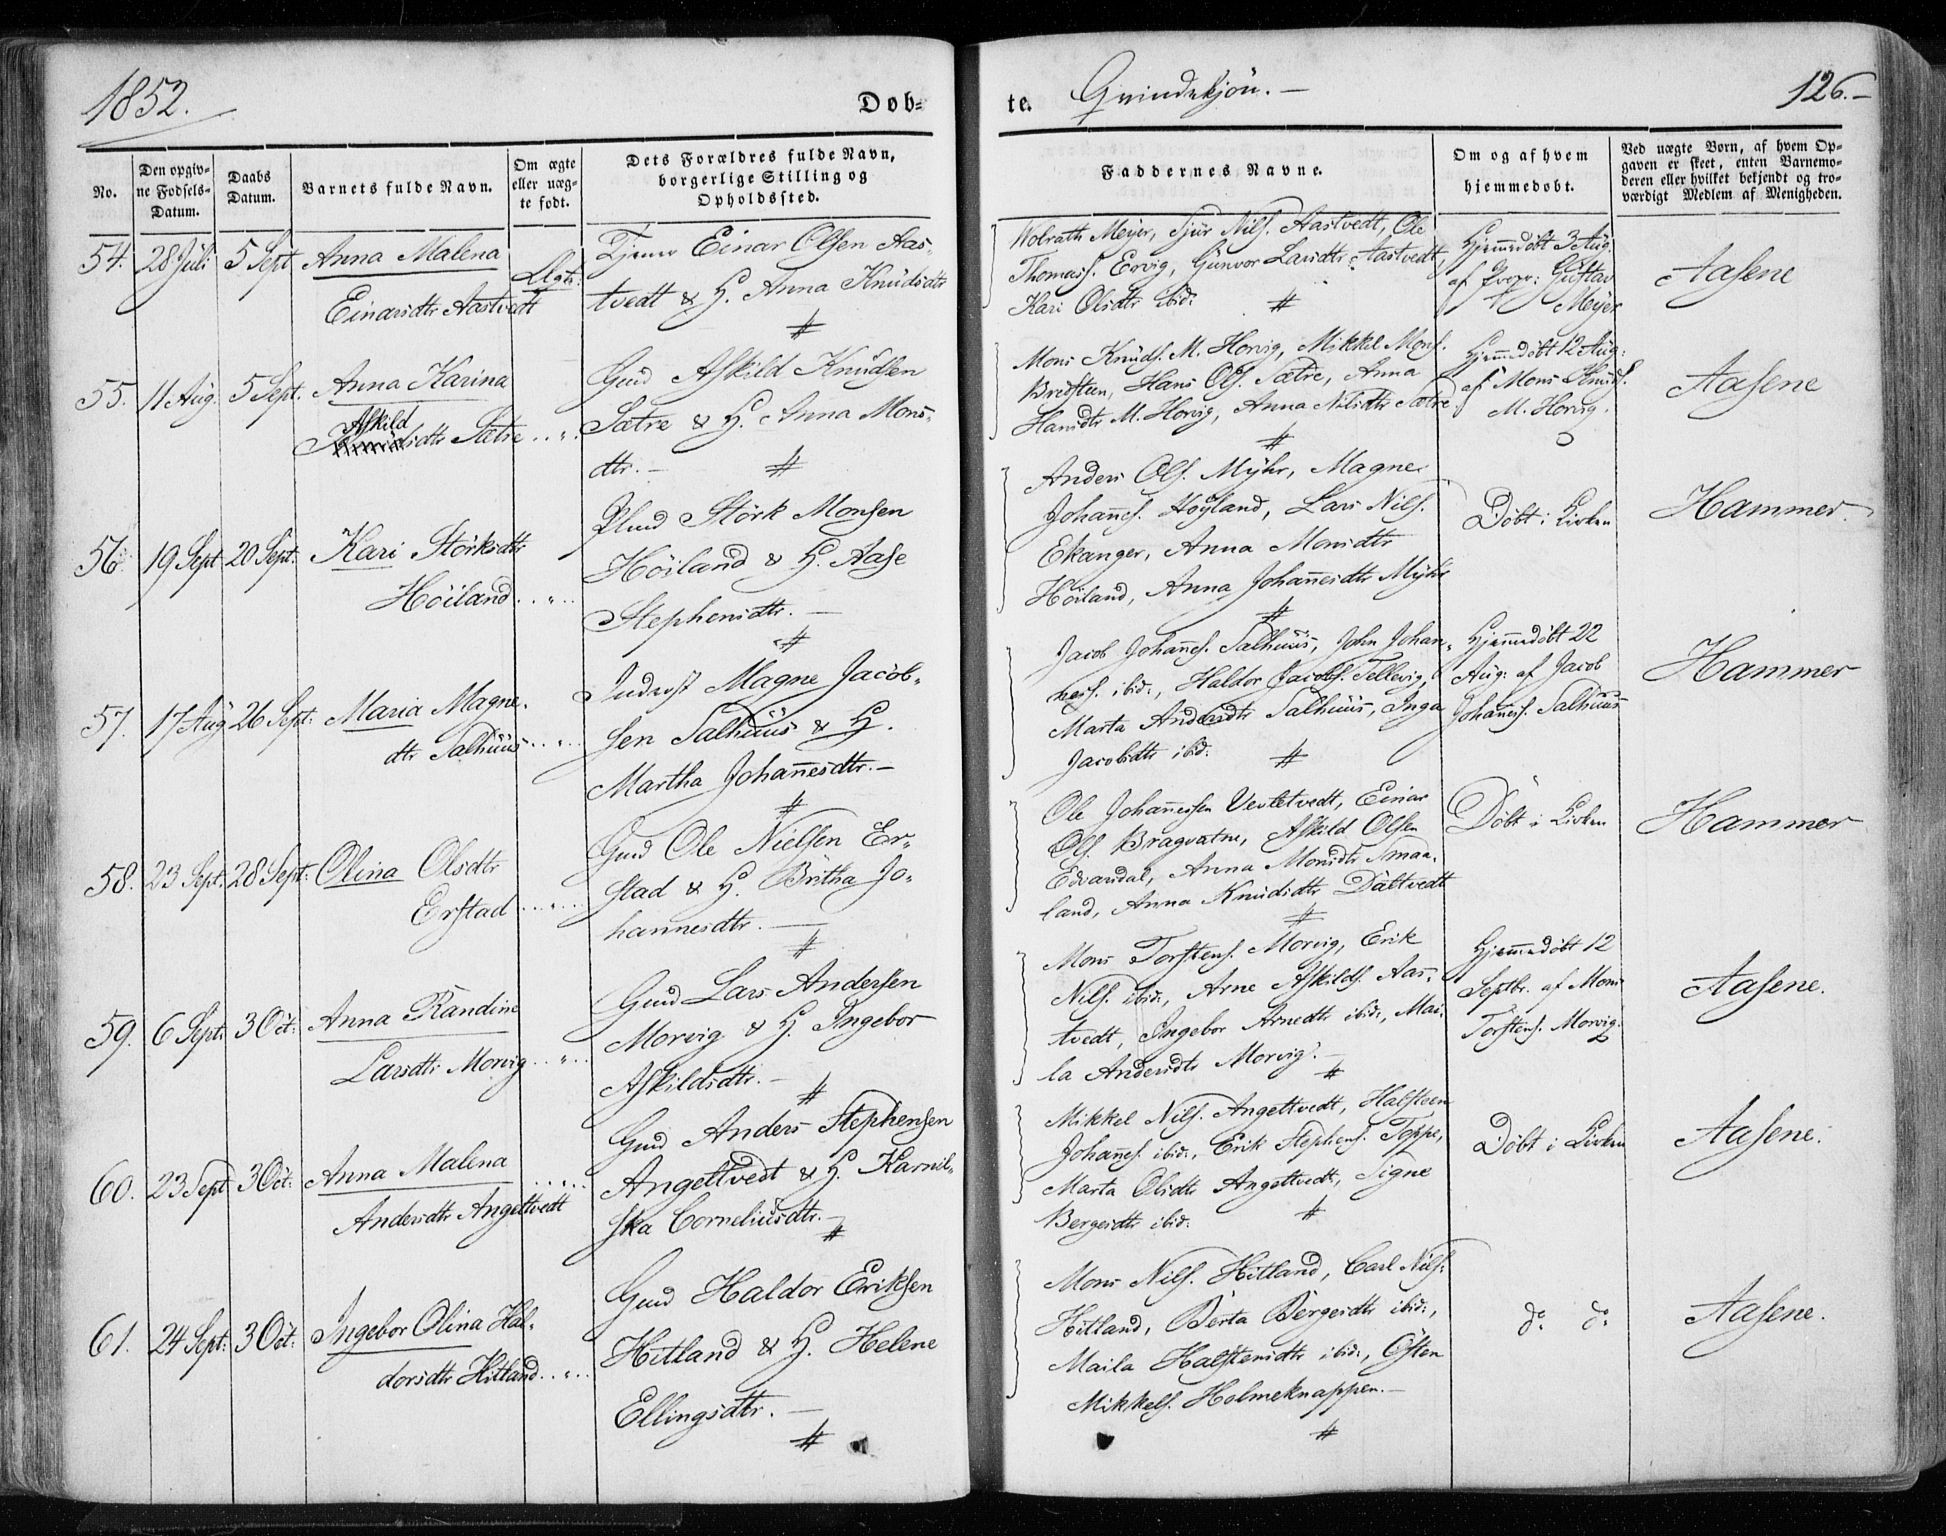 1852.
Døb-
te.
Qvindekjøn.—
126.—
No.
Den opgiv-
ne Fødsels-
Datum.
Daabs
Datum.
Barnets fulde Navn.
Om ægte
eller uæg-
te født.
Dets Forældres fulde Navn,
borgerlige Stilling og
Opholdssted.
Faddernes Navne.
Om og af hvem
hjemmedøbt.
Ved uægte Børn, af hvem Op-
gaven er skeet, enten Barnemo-
deren eller hvilket bekjendt og tro-
værdigt Medlem af Menigheden.
54. 28 Juli 5 Sept Anna Malena
Einarsdtr Aastvedt
Ægte:
Tjener Einar Olsen Aas-
tvedt & H. Anna Knudsdtr
#
Wolrath Meyer, Sjur Nils. Aastvedt, Ole
Thomass. Ervig, Gunvor Larsdtr Aastvedt,
Kari Olsdtr ibid: #
Hjemmedøbt 3 Aug.
af Gustav
Meyer
Aasene
55. 11 Aug. 5 Sept. Anna Karina
Askild
Knudsdtr Sætre . . „ .
Gmd Askild Knudsen
Sætre & H. Anna Mons-
dtr.— #
Mons Knuds. M. Horvig, Mikkel Mons.
Bredsten, Hans Ols. Sætre, Anna
Hansdtr M. Horvig, Anna Nilsdtr Sætre
#
Hjemmedøbt 12 Aug:
af Mons Knuds.
M. Horvig.
Aasene
56. 19 Sept 20 Sept. Kari Størksdtr
Høiland . . „ . .
Plmd Størk Monsen
Høiland & H. Aase
Stephensdtr.—
#
Anders Ols. Myhr, Magne
Johans. Høyland, Lars Nils.
Ekanger, Anna Monsdtr
Høiland, Anna Johannesdtr Myhr
#
Døbt i Kirken
Hammer
57. 17 Aug 26 Sept: Maria Magne-
dtr Salhuus . . „ . .
Inderst Magne Jacob-
sen Salhuus & H.
Martha Johannesdtr.—
#
Jacob Johans. Salhuus, John Johan-
ness. ibid:, Haldor Jacobs. Tellevig,
Marta Andersdtr Salhuus, Inga
Jacobsdtr ibid. #
Hjemmedøbt 22
Aug: af Jacob
Johaness. Salhuus
Hammer
58. 23 Sept. 28 Sept: Olina Olsdtr
Erstad . . „ . .
Gmd Ole Nielsen Er-
stad & H. Britha Jo-
hannesdtr.—
#
Ole Johannessen Vestetvedt, Einar
Ols. Bragvatne, Askild Olsen
Edvardal, Anna Monsdtr Smaa-
land, Anna Knudsdtr Daltvedt
#
Døbt i Kirken
Hammer
59. 6 Sept. 3 Oct: Anna Randine
Larsdtr Morvig . . „ . .
Gmd Lars Andersen
Morvig & H. Ingebor
Askildsdtr.—
#
Mons Torstens. Morvig, Erik
Nils. ibid:, Arne Askilds. Aas-
tvedt, Ingebor Arnedtr ibid:, Mai-
la Andersdtr Morvig.—
#
Hjemmedøbt 12
Septbr. af Mons
Torstens. Morvig.
Aasene.
60. 23 Sept 3 Oct: Anna Malena . . „ . .
Andersdtr Angeltvedt
Gmd Anders Stephensen
Angeltvedt & H. Karnil-
ska Corneliusdtr.—
#
Mikkel Nils. Angeltvedt, Halsteen
Johans. ibid:, Erik Stephens. Toppe,
Marta Olsdtr Angeltvedt, Signe
Bergersdtr ibid: #
Døbt i Kirken
Aasene.
61. 24 Sept: 3 Oct: Ingebor Olina Hal-
dorsdtr Hitland . . „ . .
Gmd Haldor Eriksen
Hitland & H. Helene
Ellingsdtr.—
#
Mons Nils. Hitland, Carl Nils.
Hitland, Berta Bergersdtr ibid:,
Maila Halstensdtr ibid:, Østen
Mikkels. Holmeknappen.—
#
do do
Aasene.